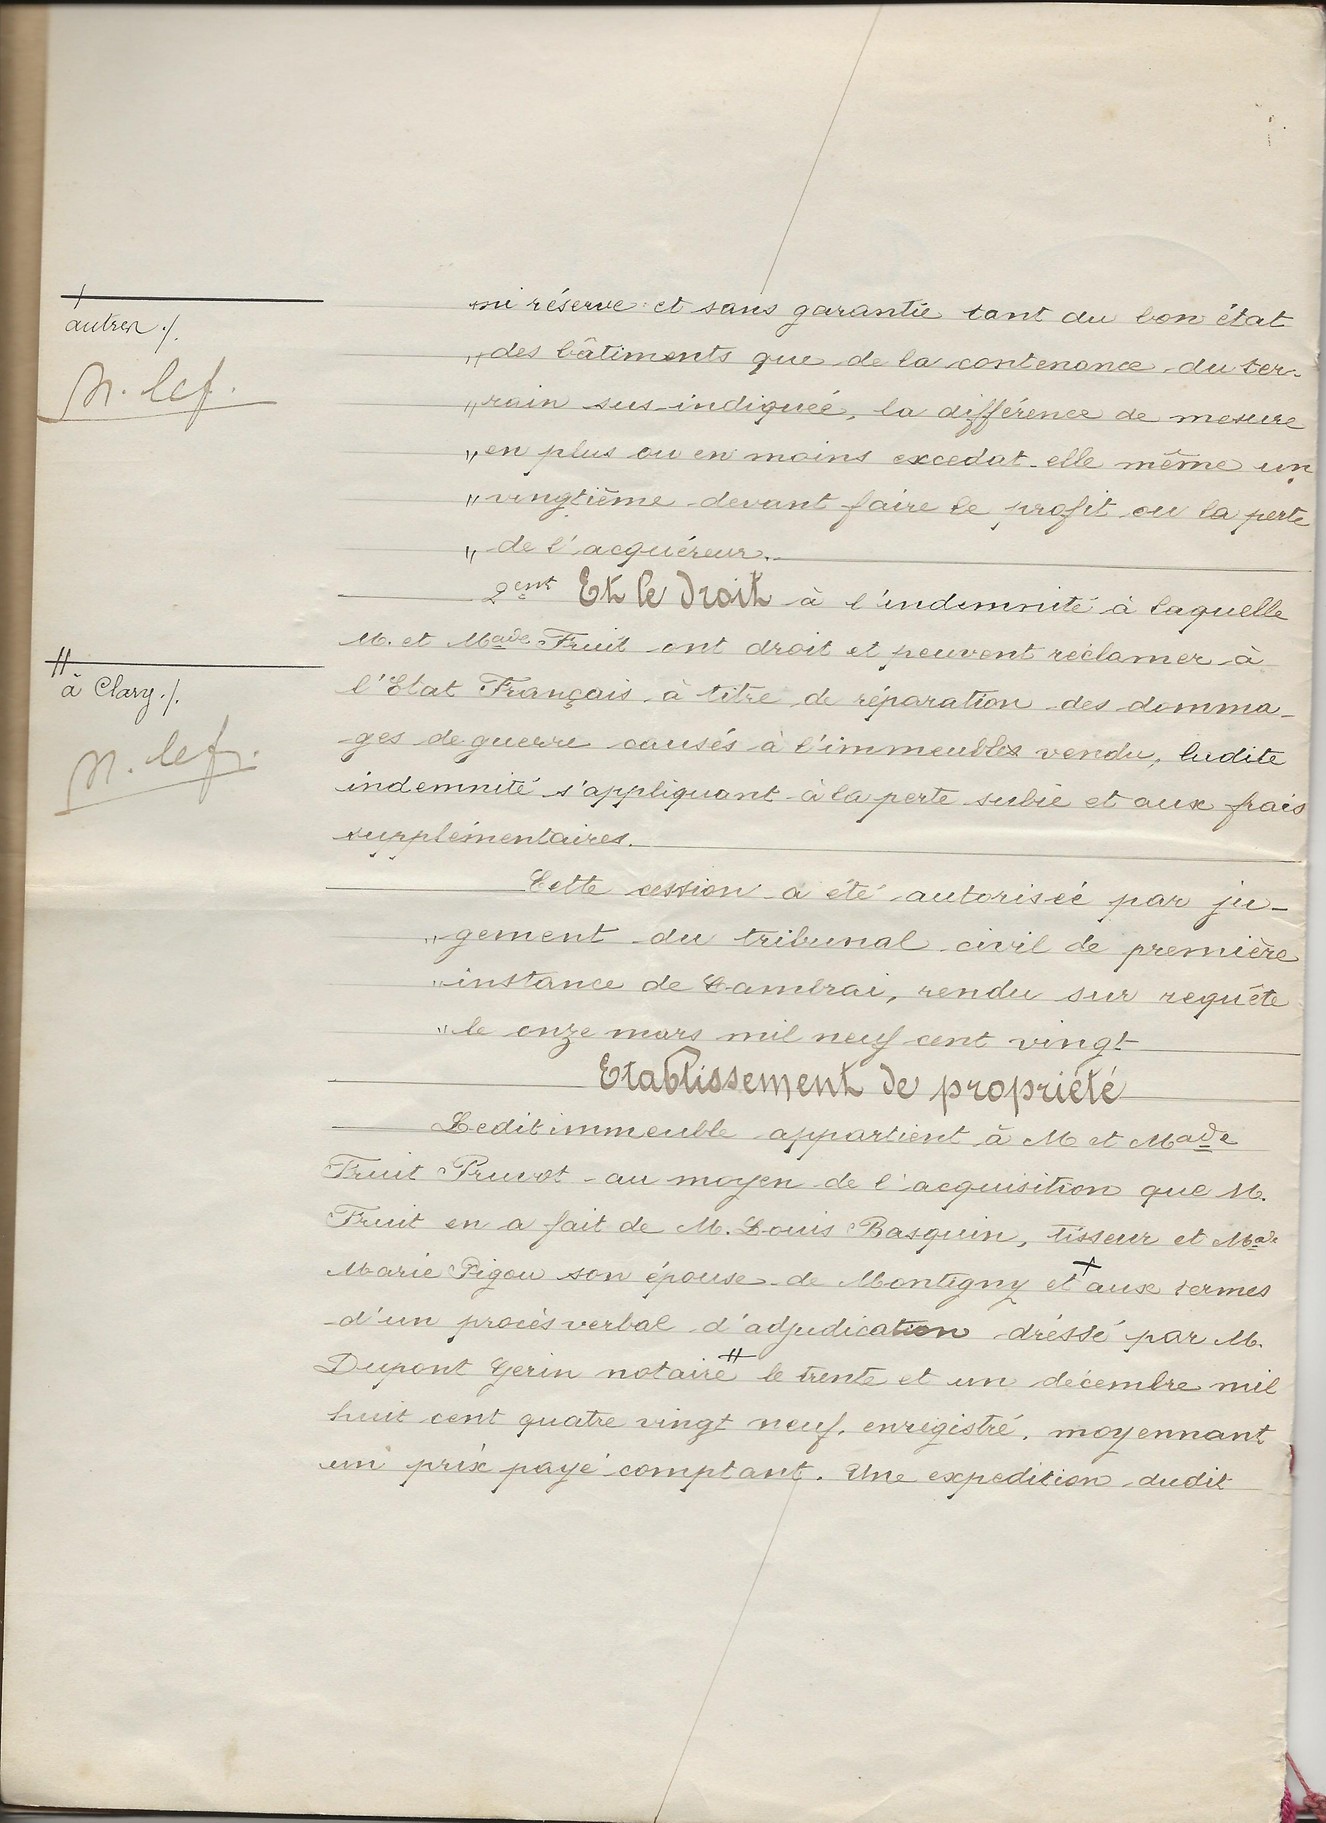 +
autres ./.
N. lef.
#
à Clary ./.
N. lef.
ni réserve et sans garantie tant du bon état
" des bâtiments que de la contenance du ter-
" rain sus indiquée, la différence de mesure
" en plus ou en moins excedat elle même un
" vingtième devant faire le profit ou la perte
" de l'acquéreur.
2ent Et le Droit à l'indemnité à laquelle
M. et Made Fruit ont droit et peuvent réclamer à
l'Etat Français à titre de réparation des domma-
ges de guerre causés à l'immeuble vendu, ladite
indemnité s'appliquant à la perte subie et aux frais
supplémentaires.
Cette cession a été autorisée par ju-
" gement du tribunal civil de première
" instance de Cambrai, rendu sur requête
" le onze mars mil neuf cent vingt
Etablissement de propriété
Ledit immeuble appartient à M et Made
Fruit Pruvot au moyen de l'acquisition que M.
Fruit en a fait de M. Louis Basquin, tisseur et Made
Marie Pigou son épouse de Montigny et + aux termes
d'un procès verbal d'adjudication dréssé par M.
Dupont Gerin notaire # le trente et un décembre mil
huit cent quatre vingt neuf, enregistré, moyennant
un prix payé comptant. Une expedition dudit